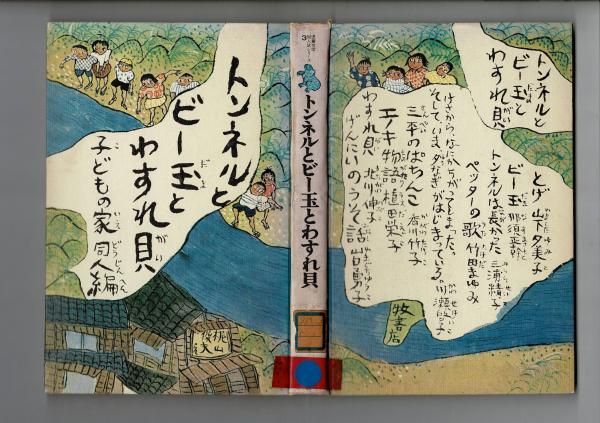 トンネルと
ビー玉と
わすれ貝
子どもの家 同人編
桃山
俊夫
3
トンネルとビー玉とわすれ貝
トンネルと
ビー玉と
わすれ貝
とげ 山下夕美子
ビー玉 那須
トンネルは長かった 三浦精子
ペッターの歌 竹田まゆみ
はてから、なにかちがってしまった。
そして、いま、夕なぎがはじまっている。川瀬
三平のぱちんこ 香川竹子
エノキ物語 植田栄子
わすれ貝 北川伸子
げんにいのうそ話 山口勇子
牧書店